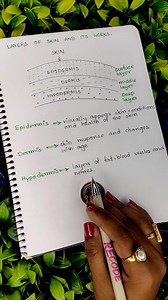 LAYERS OF SKIN AND ITS WORKS.
SKIN
EPIDERMIS
Surface
layer
DERMIS
Middle
layer
HYPODERMIS
Deep
layer
Epidermis → visually appears skin conditions
and health of the skin
Dermis → skin response and changes
with age
Hypodermis → layers of fat, blood vessels and
nerves